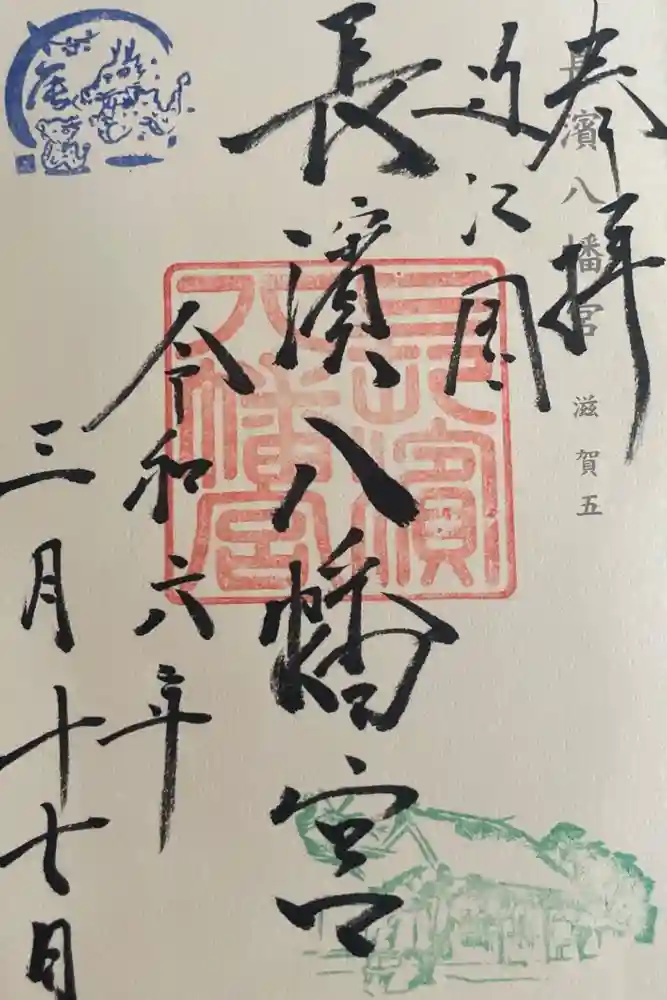 奉拝
長濱八幡宮 滋賀五
近江国
長濱八幡宮
長濱
八幡宮
令和六年
三月十七日